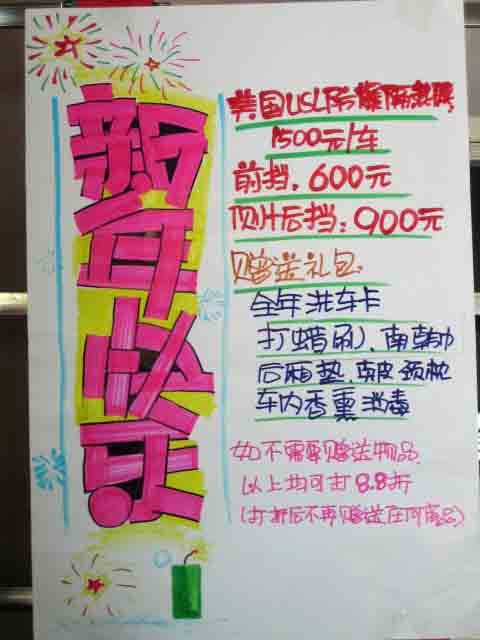 新年快乐
美国USL防爆隔热膜
1500元/车
前挡，600元
侧后挡：900元
赠送礼包：
全年洗车卡
打蜡
后厢垫、颈枕
车内香熏消毒
如不需要赠送物品
以上均可打8.8折
(打折后不再赠送任何商品)